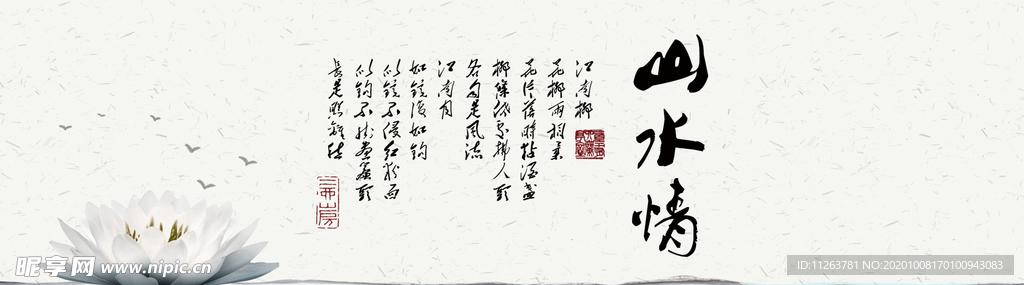 山水情
江南柳
花柳两相柔
花片落时黏酒盏
柳条低处拂人头
各自是风流
江南月
如镜复如钩
似镜不侵红粉面
似钩不挂画帘头
长是照离愁
三西山房
昵享网 www.nipic.cn
ID:11263781 NO:20201008170100943083